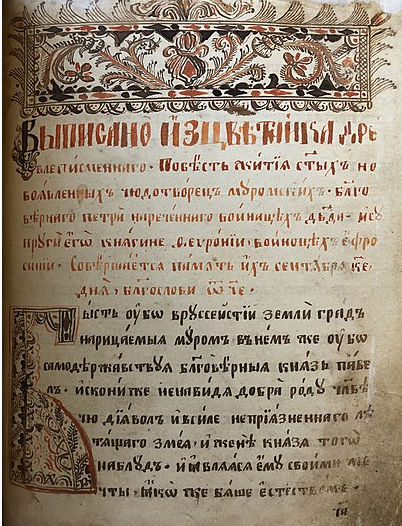 Выписано и̑зцвѣтника дре
влеписменнаго· Повѣсть жития ст҃ыхъ но
воявленныхъ чюдотворец муромскихъ· бл҃го
вѣрнаго петра нареченнаго воиноцѣхъ дв҃да· и су
пруги его княгине ѳевронии, воиноцѣхъ еѵфро
синии· Совершается память ихъ сентября к҃е,
дня, благослови ѿче,
Бысть ѹбо врусѕеистїи земли градъ
нарицаемыя муромъ внемъ же ѹбо
самодержавствуя бл҃говѣрныи князь паве
лъ· искониже ненавидя добра роду чл҃вѣ
чю дїяволъ ивъсиле неприязненнаго лѣ
тящаго змея· и женѣ князя того
наблудъ· и явлаяся ему своими ме
чты· ꙗко же бяше естествомъ·